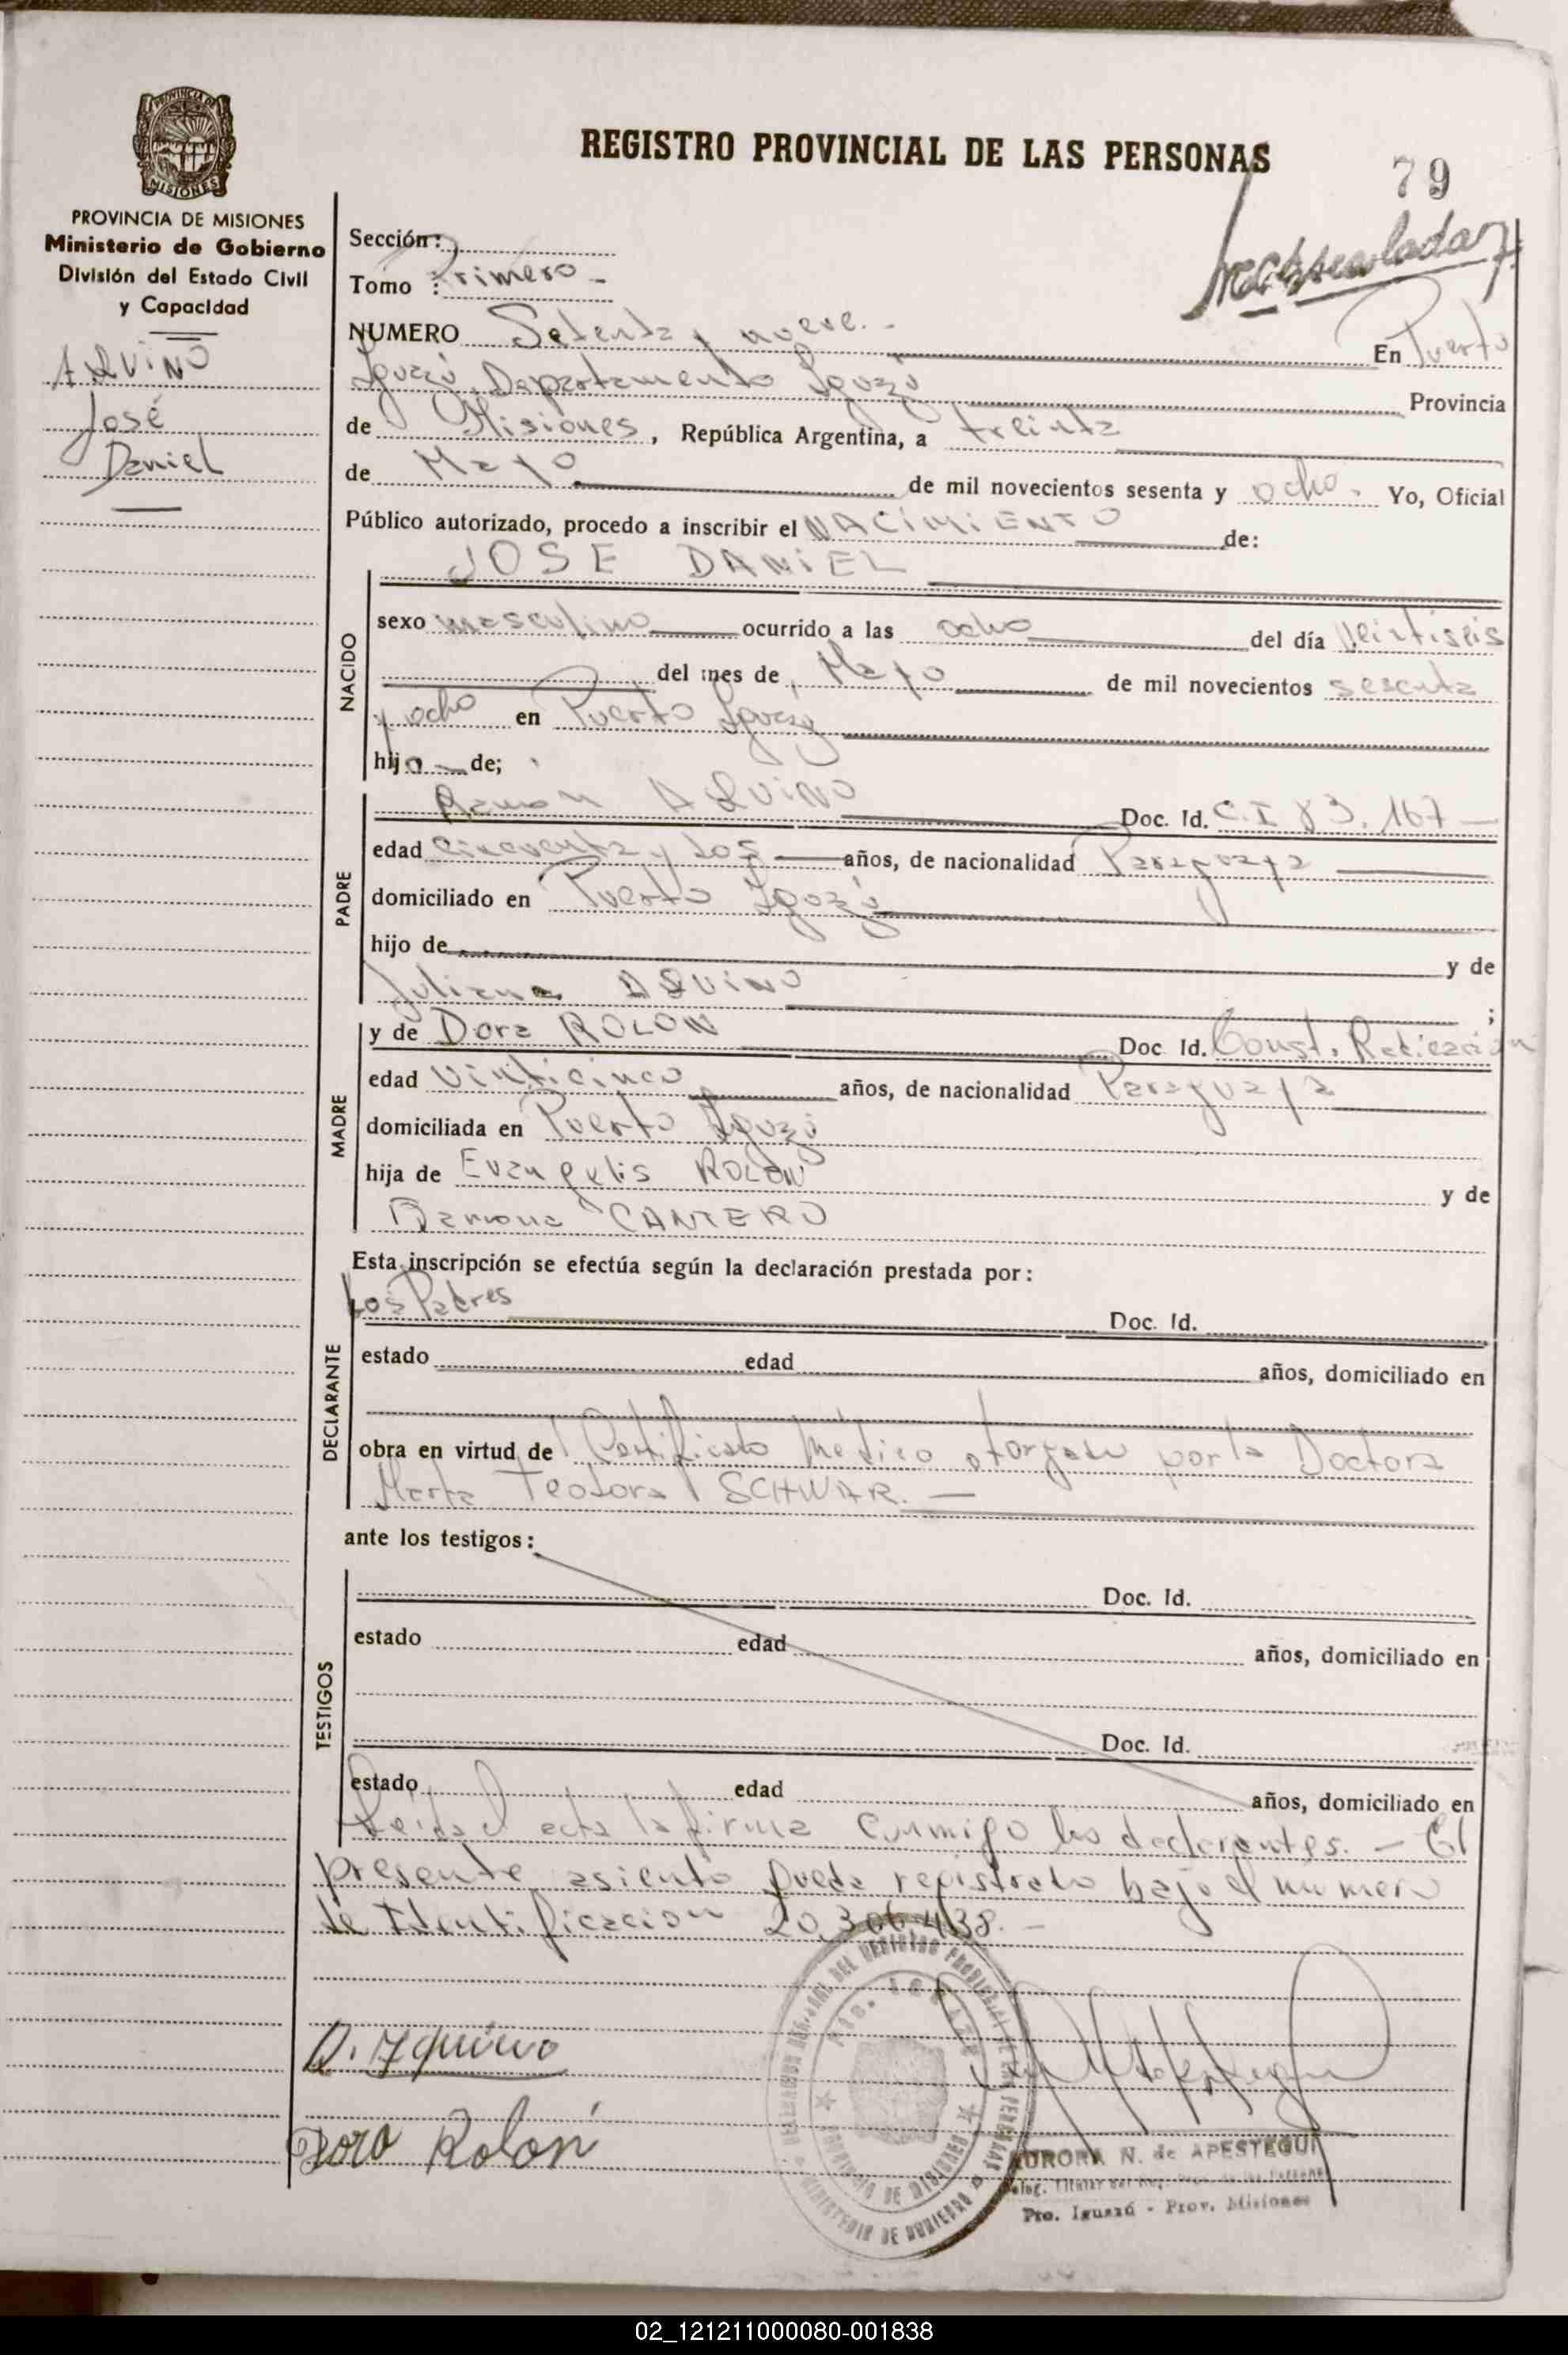 REGISTRO PROVINCIAL DE LAS PERSONAS
79
PROVINCIA DE MISIONES
PROVINCIA DE MISIONES
Ministerio de Gobierno
División del Estado Civil
y Capacidad
AQUINO
José
Daniel
Sección:
Tomo : Primero -
NUMERO Setenta y nueve. - En Puerto
Iguazú, Departamento Iguazú Provincia
de Misiones, República Argentina, a treinta
de Mayo de mil novecientos sesenta y ocho. Yo, Oficial
Público autorizado, procedo a inscribir el NACIMIENTO de:
JOSE DANIEL
NACIDO
sexo masculino ocurrido a las ocho del día Veintiseis
del mes de Mayo de mil novecientos sesenta
y ocho en Puerto Iguazú
hijo de;
PADRE
Ramon AQUINO Doc. Id. C.I 83.167
edad cincuenta y dos años, de nacionalidad Paraguaya
domiciliado en Puerto Iguazú
hijo de y de
Juliana AQUINO ;
MADRE
y de Dora ROLON Doc Id. Const. Radicación
edad Vinticinco años, de nacionalidad Paraguaya
domiciliada en Puerto Iguazú
hija de Evangelis ROLON y de
Ramona CANTERO
Esta inscripción se efectúa según la declaración prestada por:
DECLARANTE
Los Padres Doc. Id.
estado edad años, domiciliado en
obra en virtud de Certificato Medico otorgado por la Doctora
Marta Teodora SCHWAR. -
ante los testigos:
TESTIGOS
Doc. Id.
estado edad años, domiciliado en
Doc. Id.
estado edad años, domiciliado en
Leida el acta la firma conmigo los declarantes. - El
presente asiento queda registrato bajo el numero
de Identificacion 20.306.438. -
R. Aquino
Dora Rolón
PROVINCIA DE MISIONES
MINISTERIO DE GOBIERNO
AURORA N. de APESTEGUI
Pto. Iguazú - Prov. Misiones
02_121211000080-001838